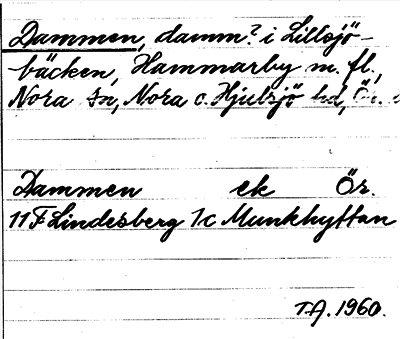 Dammen, damm? i Lillsjö-
bäcken, Hammarby m. fl.,
Nora sn, Nora o. Hjulsjö hd, Ör.
Dammen ek Ör.
11 F Lindesberg 1c Munkhyttan
T.A. 1960.